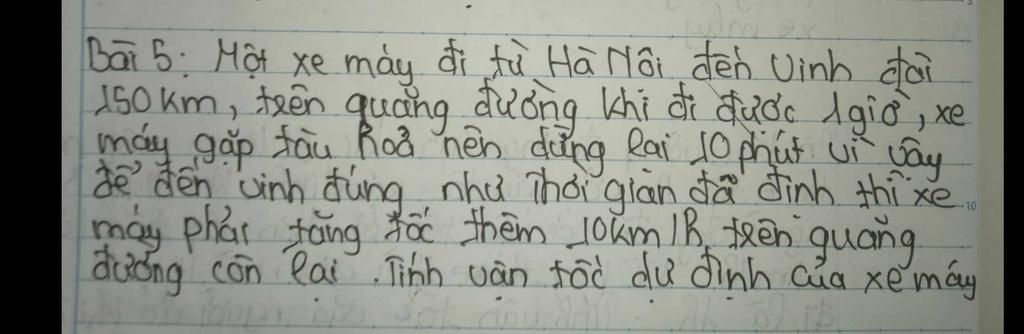 Bài 5: Một xe máy đi từ Hà Nội đến Vinh dài
150km, trên quãng đường khi đi được 1 giờ, xe
máy gặp tàu hoả nên dừng lại 10 phút vì vậy
để đến vinh đúng như thời gian đã định thì xe
máy phải tăng tốc thêm 10km/h trên quãng
đường còn lại. Tính vận tốc dự định của xe máy